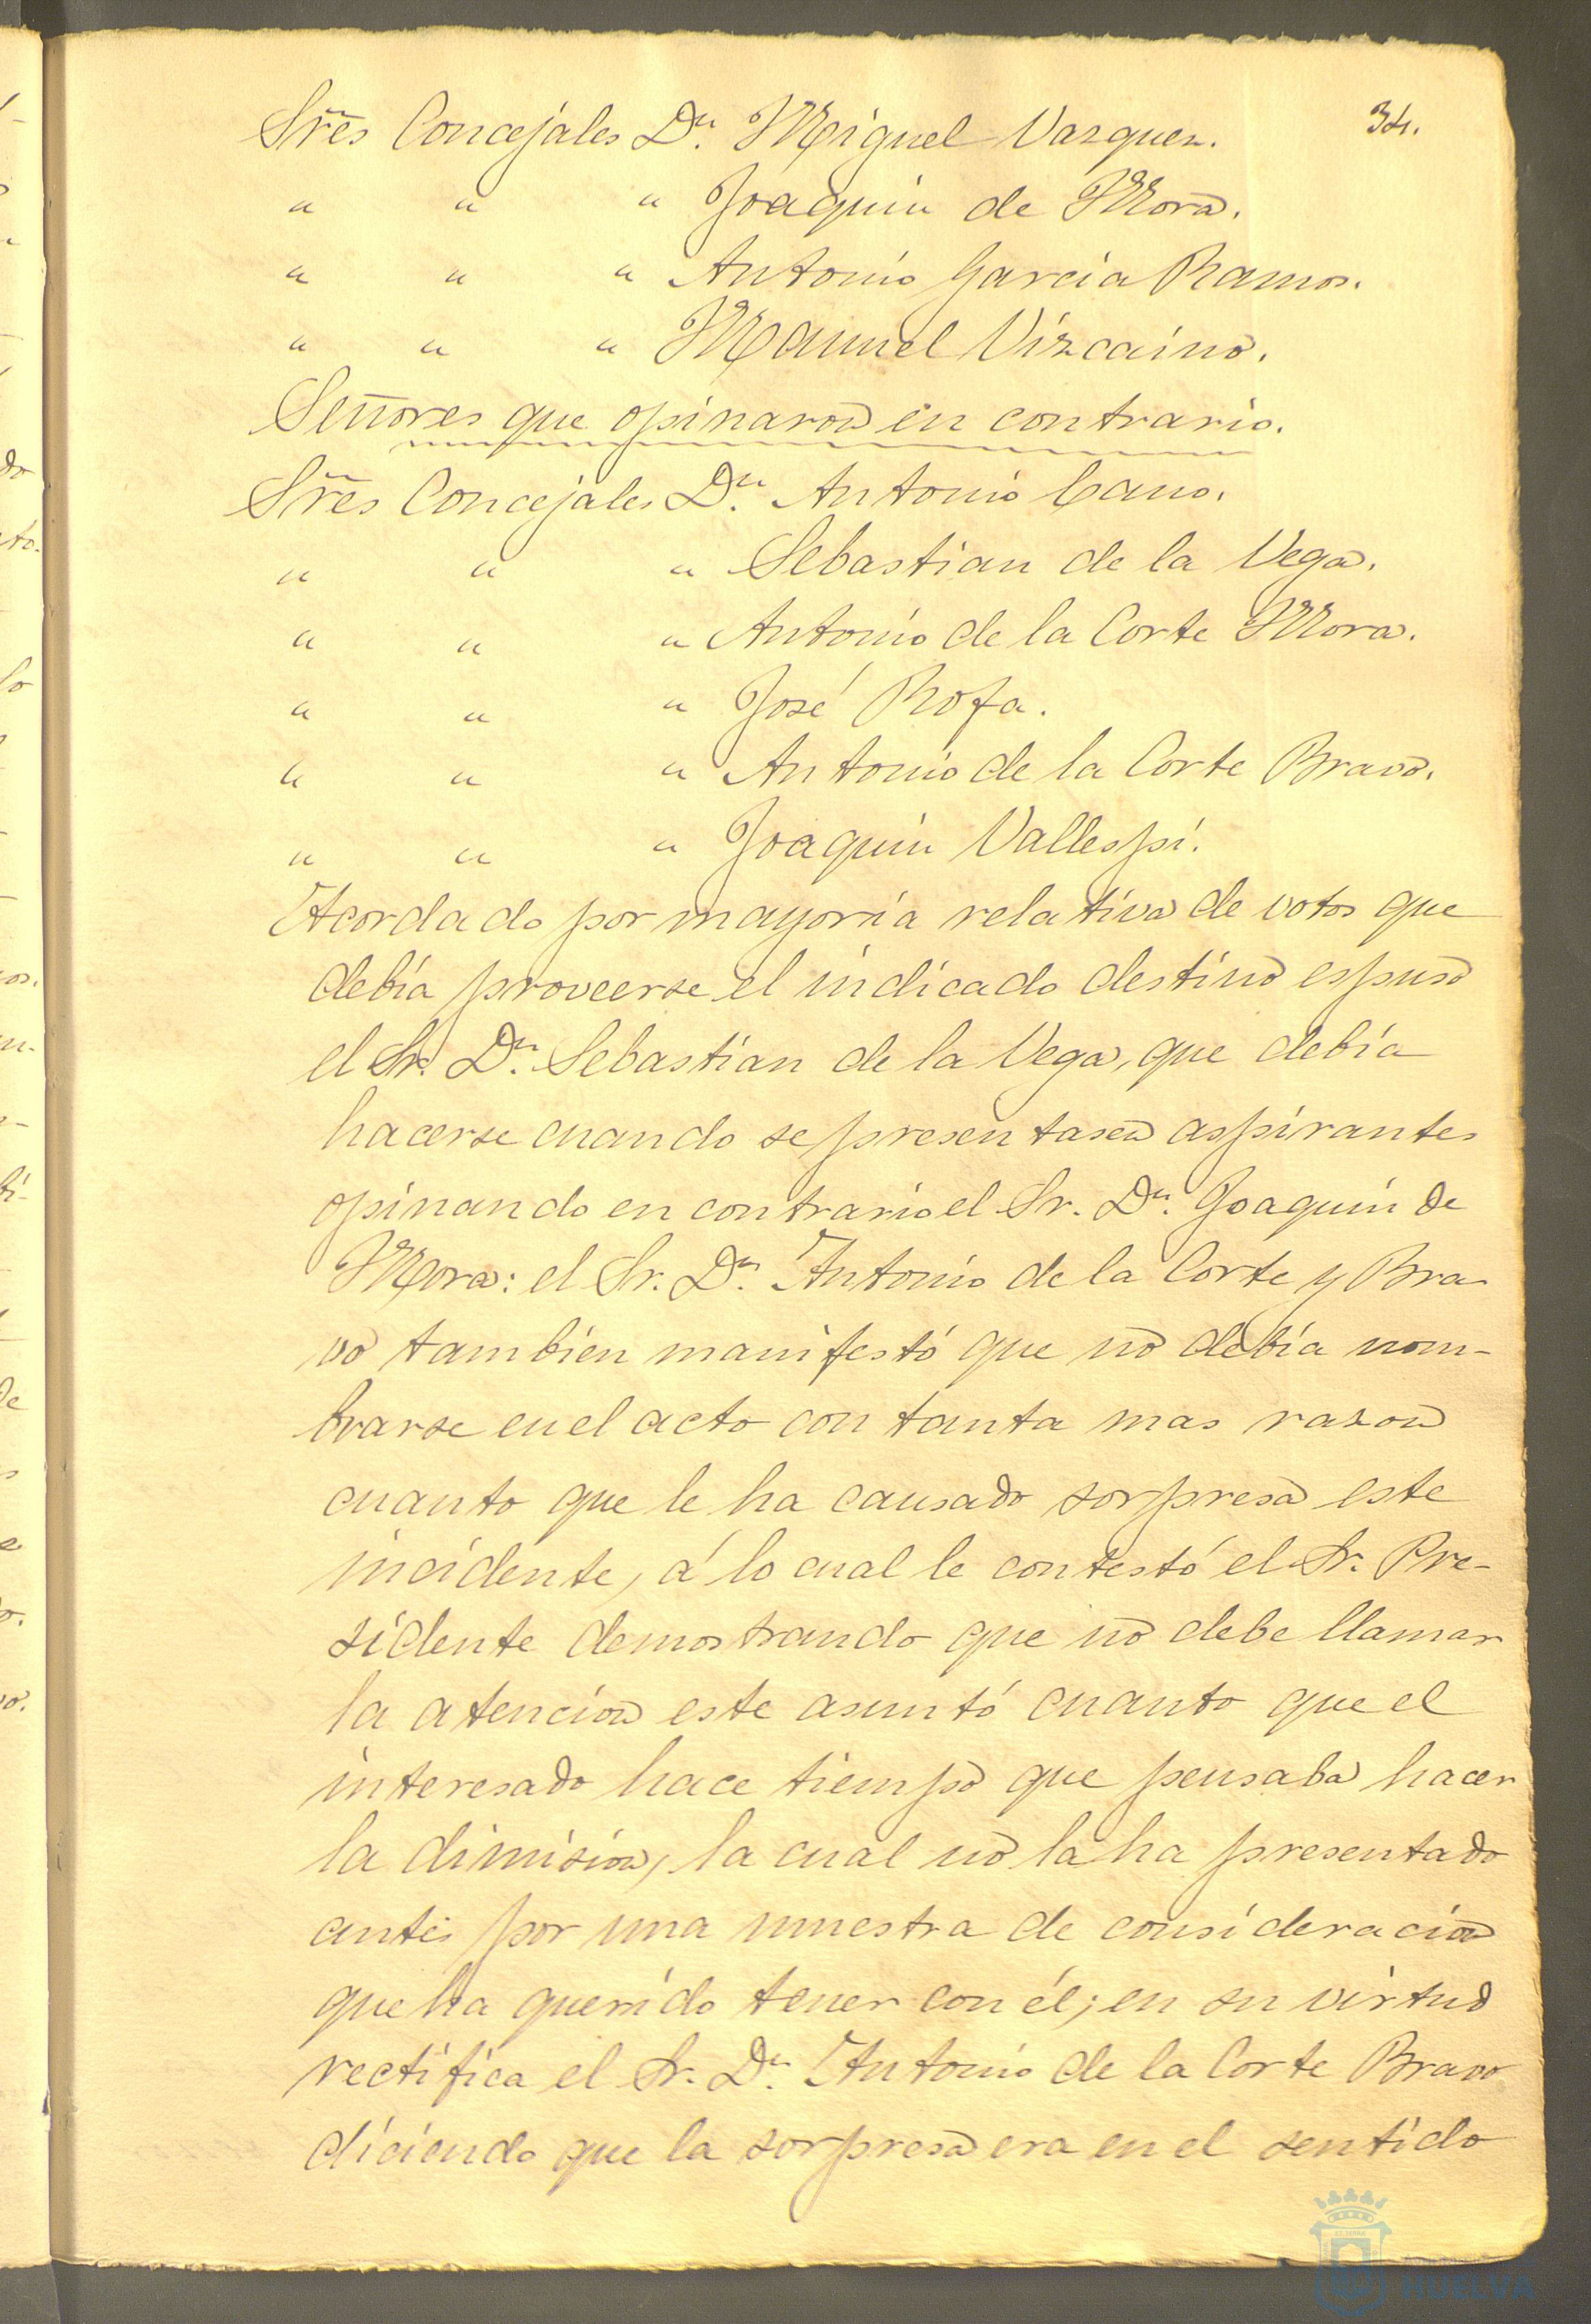 34.
Sres Concejales Dn. Miguel Vazquez.
" " " Joaquin de Mora.
" " " Antonio Garcia Ramos.
" " " Manuel Vizcaino.
Señores que opinaron en contrario.
Sres Concejales Dn. Antonio Cano.
" " " Sebastian de la Vega.
" " " Antonio de la Corte Mora.
" " " José Rofa.
" " " Antonio de la Corte Bravo.
" " " Joaquin Vallespi.
Acordado por mayoria relativa de votos que
debia proveerse el indicado destino espuso
el Sr. Dn. Sebastian de la Vega, que debia
hacerse cuando se presentasen aspirantes
opinando en contrario el Sr. Dn. Joaquin de
Mora: el Sr. Dn. Antonio de la Corte y Bra
vo tambien manifestó que no debia nom-
brarse en el acto con tanta mas razon
cuanto que le ha causado sorpresa este
incidente, á lo cual le contestó el Sr. Pre-
sidente demostrando que no debe llamar
la atencion este asuntó cuanto que el
interesado hace tiempo que pensaba hacer
la dimision, la cual no la ha presentado
antes por una muestra de consideracion
que ha querido tener con él; en su virtud
rectifica el Sr. Dn. Antonio de la Corte Bravo
diciendo que la sorpresa era en el sentido
HUELVA